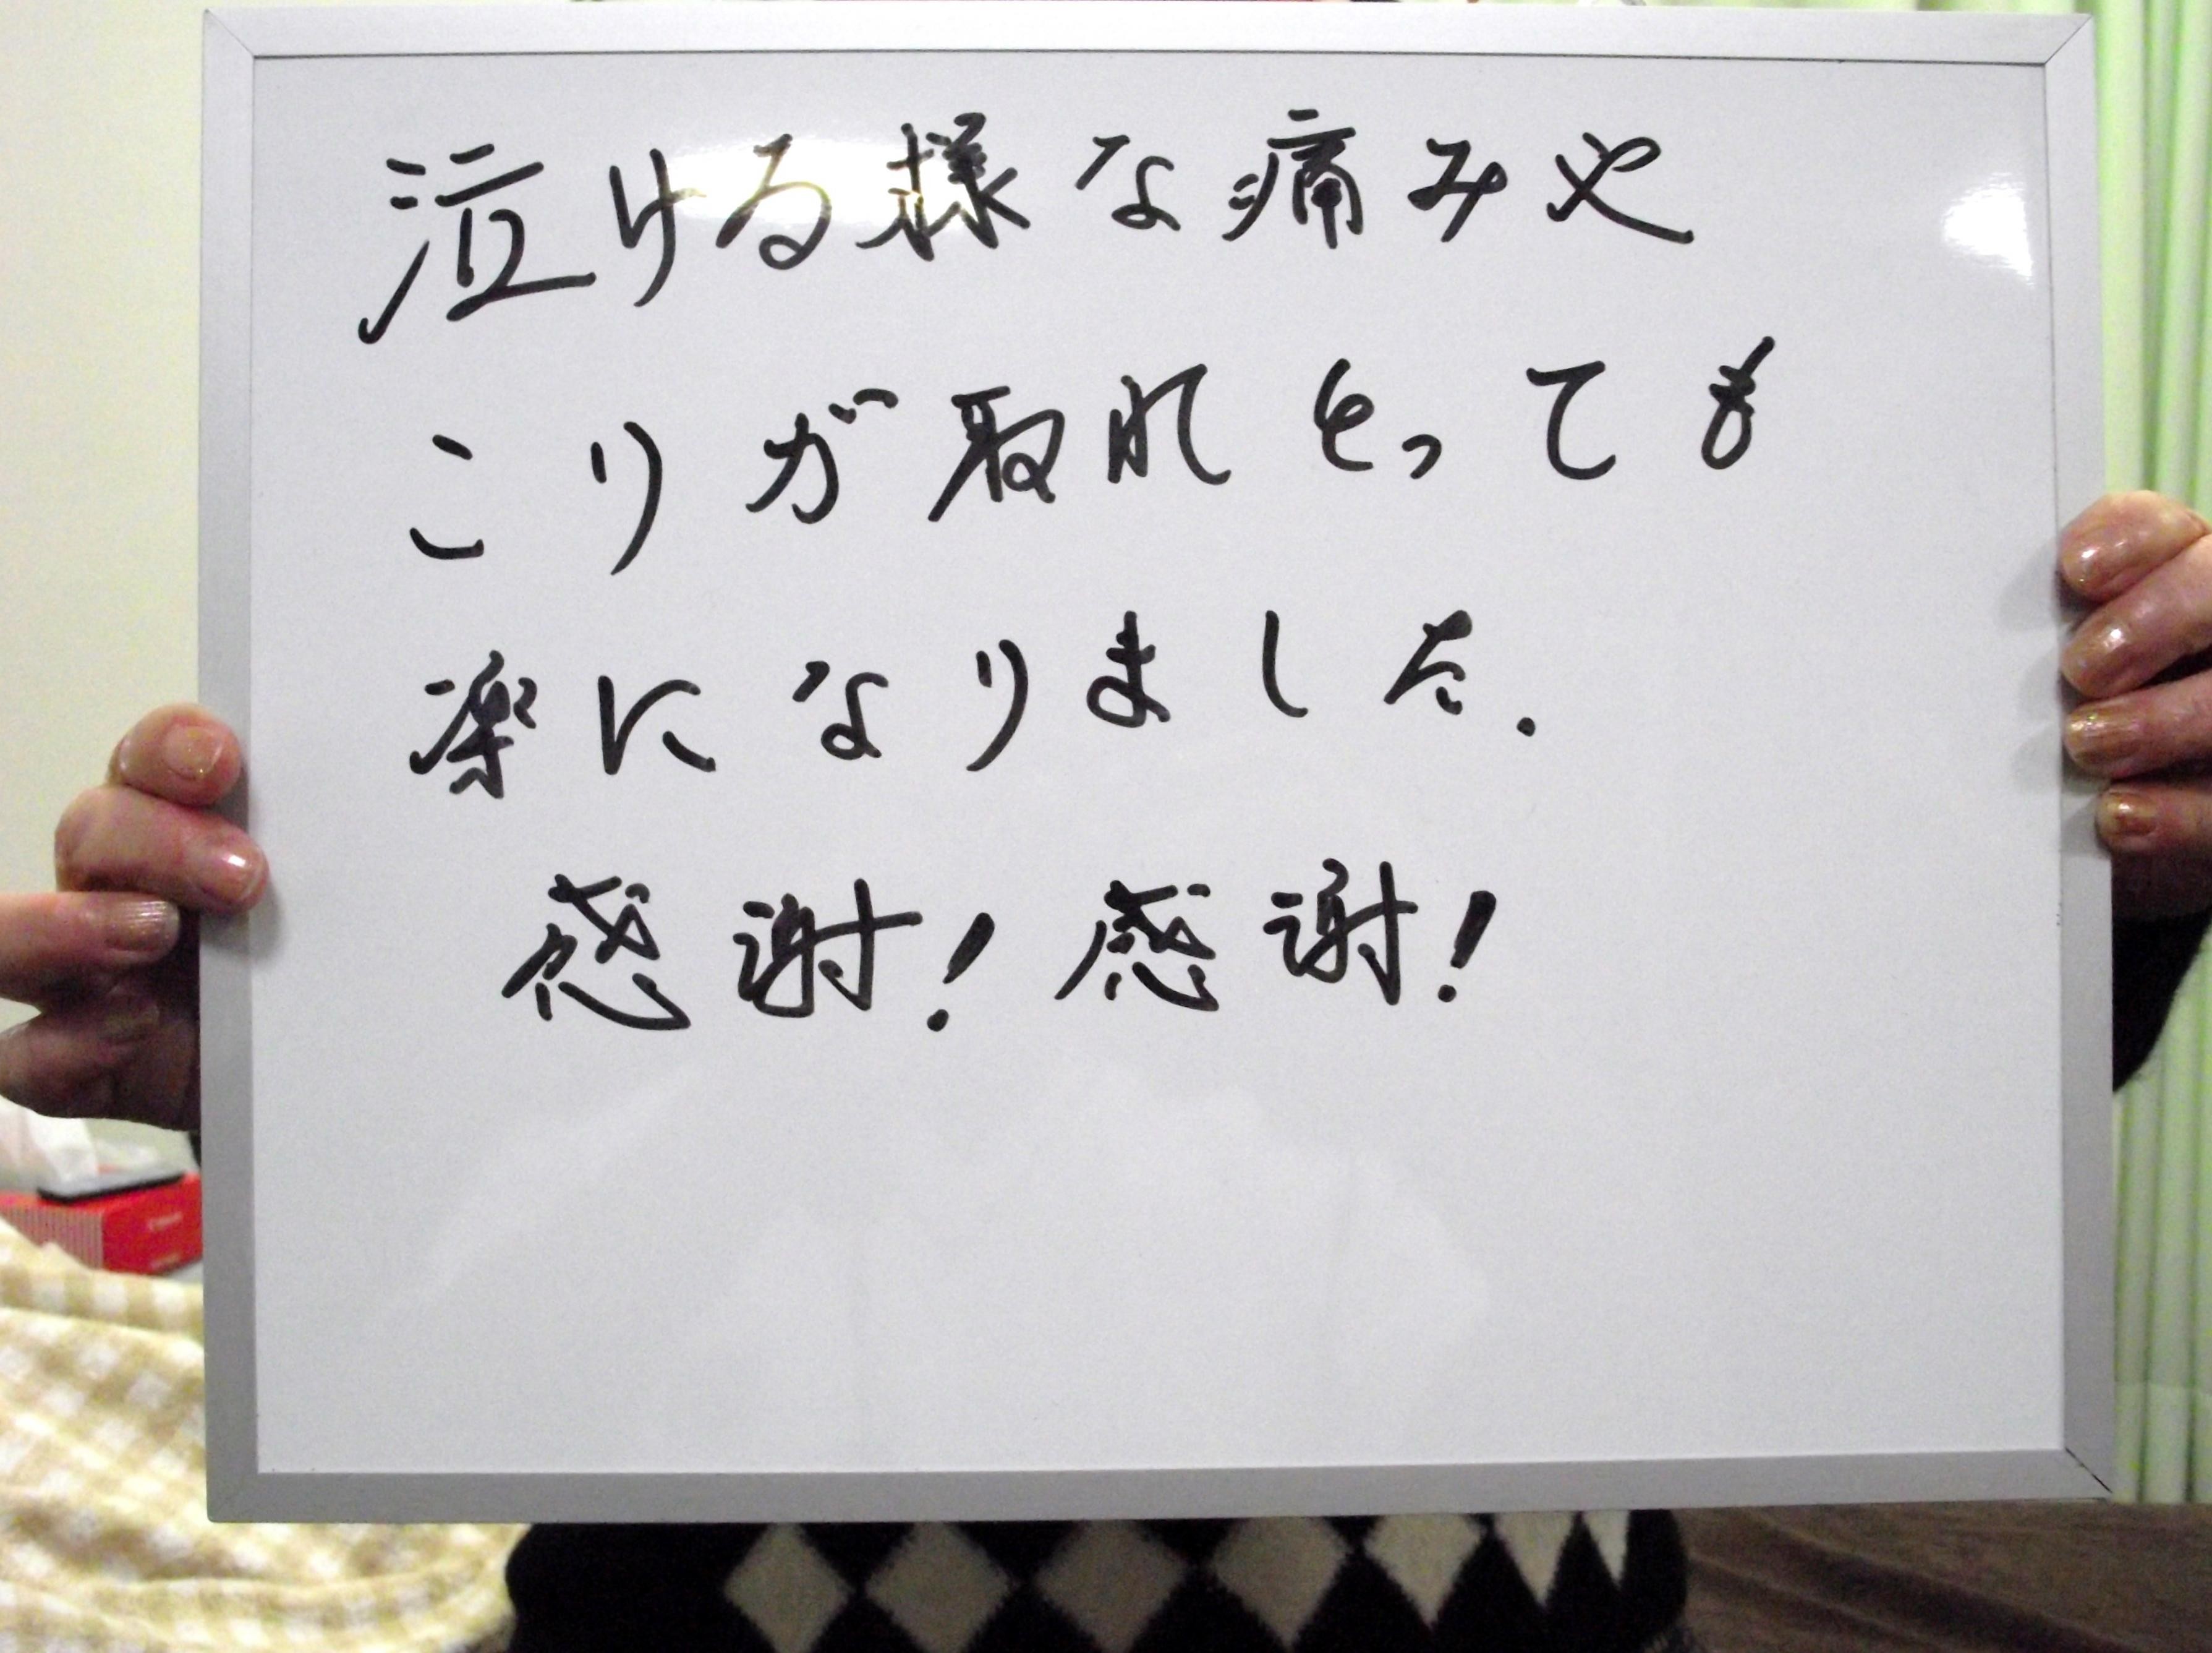 泣ける様な痛みや
こりが取れとっても
楽になりました.
感謝!感謝!